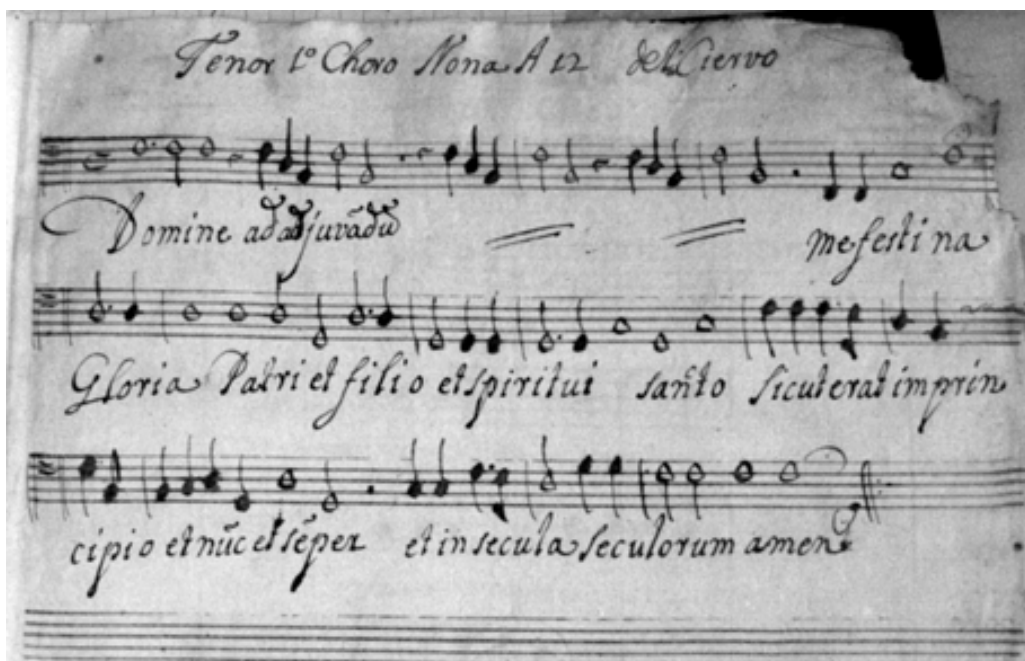 Tenor 1º Choro Nona A 12 del Ciervo
Domine ad adjuvãdũ me festi na
Gloria Patri et filio et spiritui sañto sicut erat im prin
cipio et nũc et sẽper et in secula seculorum amen